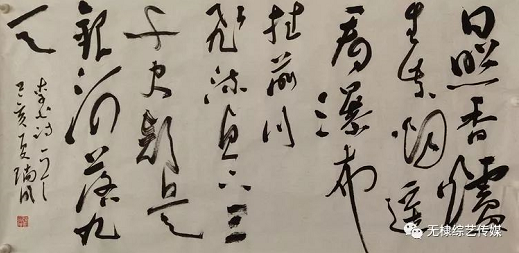 日照香爐
生紫烟遥
看瀑布
挂前川
飛流直下三
千尺疑是
銀河落九
天
李白诗一首
己亥夏
无棣综艺传媒